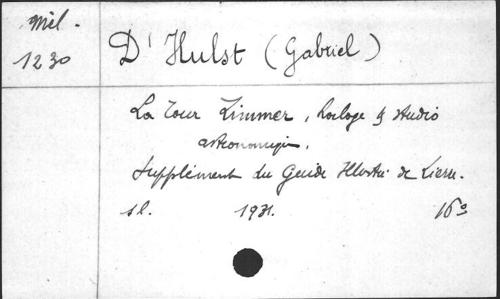 Mil.
1230
D'Hulst (Gabriel)
La Tour Zimmer, horloge & studio
astronomique.
Supplément du Guide Illustré de Lierre.
s.l. 1931. 16°